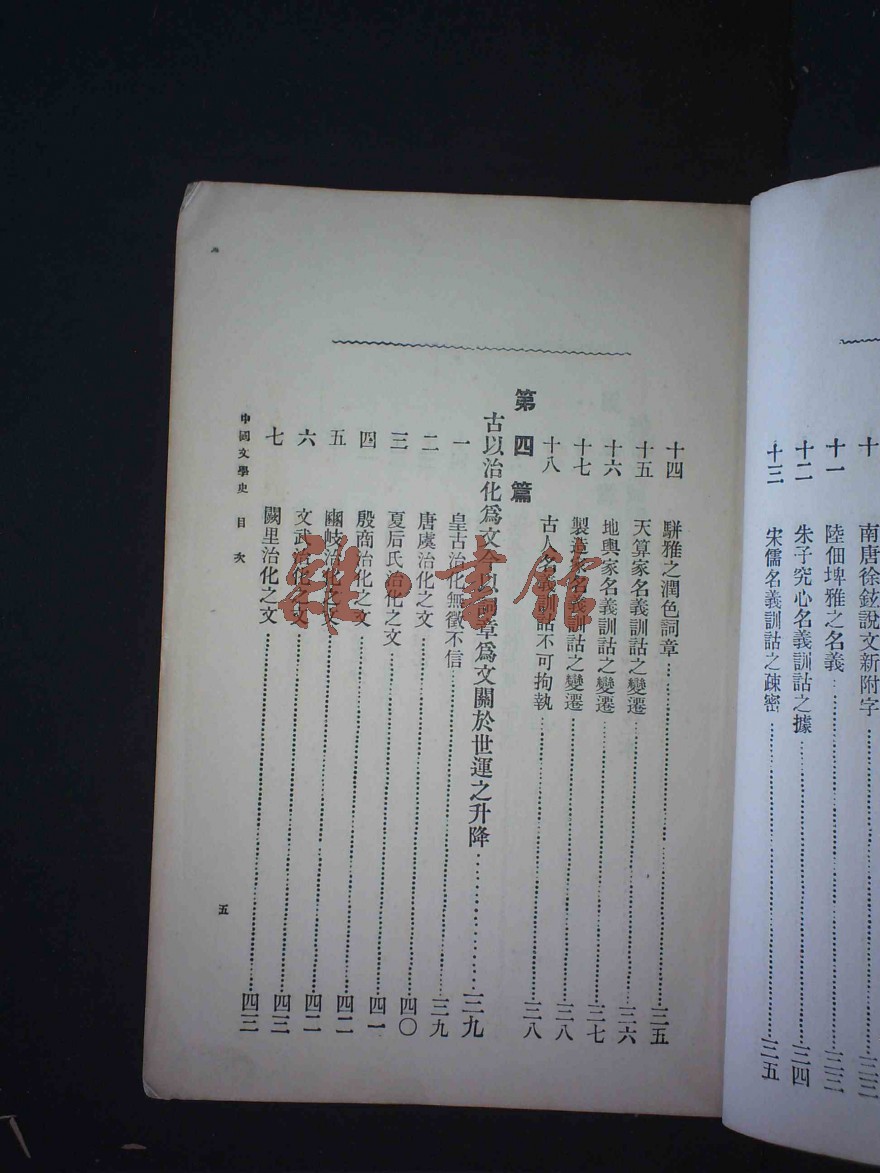 十 南唐徐鉉說文新附字 三三
十一 陸佃埤雅之名義 三三
十二 朱子究心名義訓詁之據 三四
十三 宋儒名義訓詁之疎密 三五
十四 駢雅之潤色詞章 三五
十五 天算家名義訓詁之變遷 三六
十六 地輿家名義訓詁之變遷 三七
十七 製造家名義訓詁之變遷 三八
十八 古人名義訓詁不可拘執 三八
第四篇
古以治化爲文今以詞章爲文關於世運之升降 三九
一 皇古治化無徵不信 三九
二 唐虞治化之文 三九
三 夏后氏治化之文 四〇
四 殷商治化之文 四一
五 豳岐治化之文 四二
六 文武治化之文 四二
七 闕里治化之文 四三
中國文學史 目次
五
雜·書館